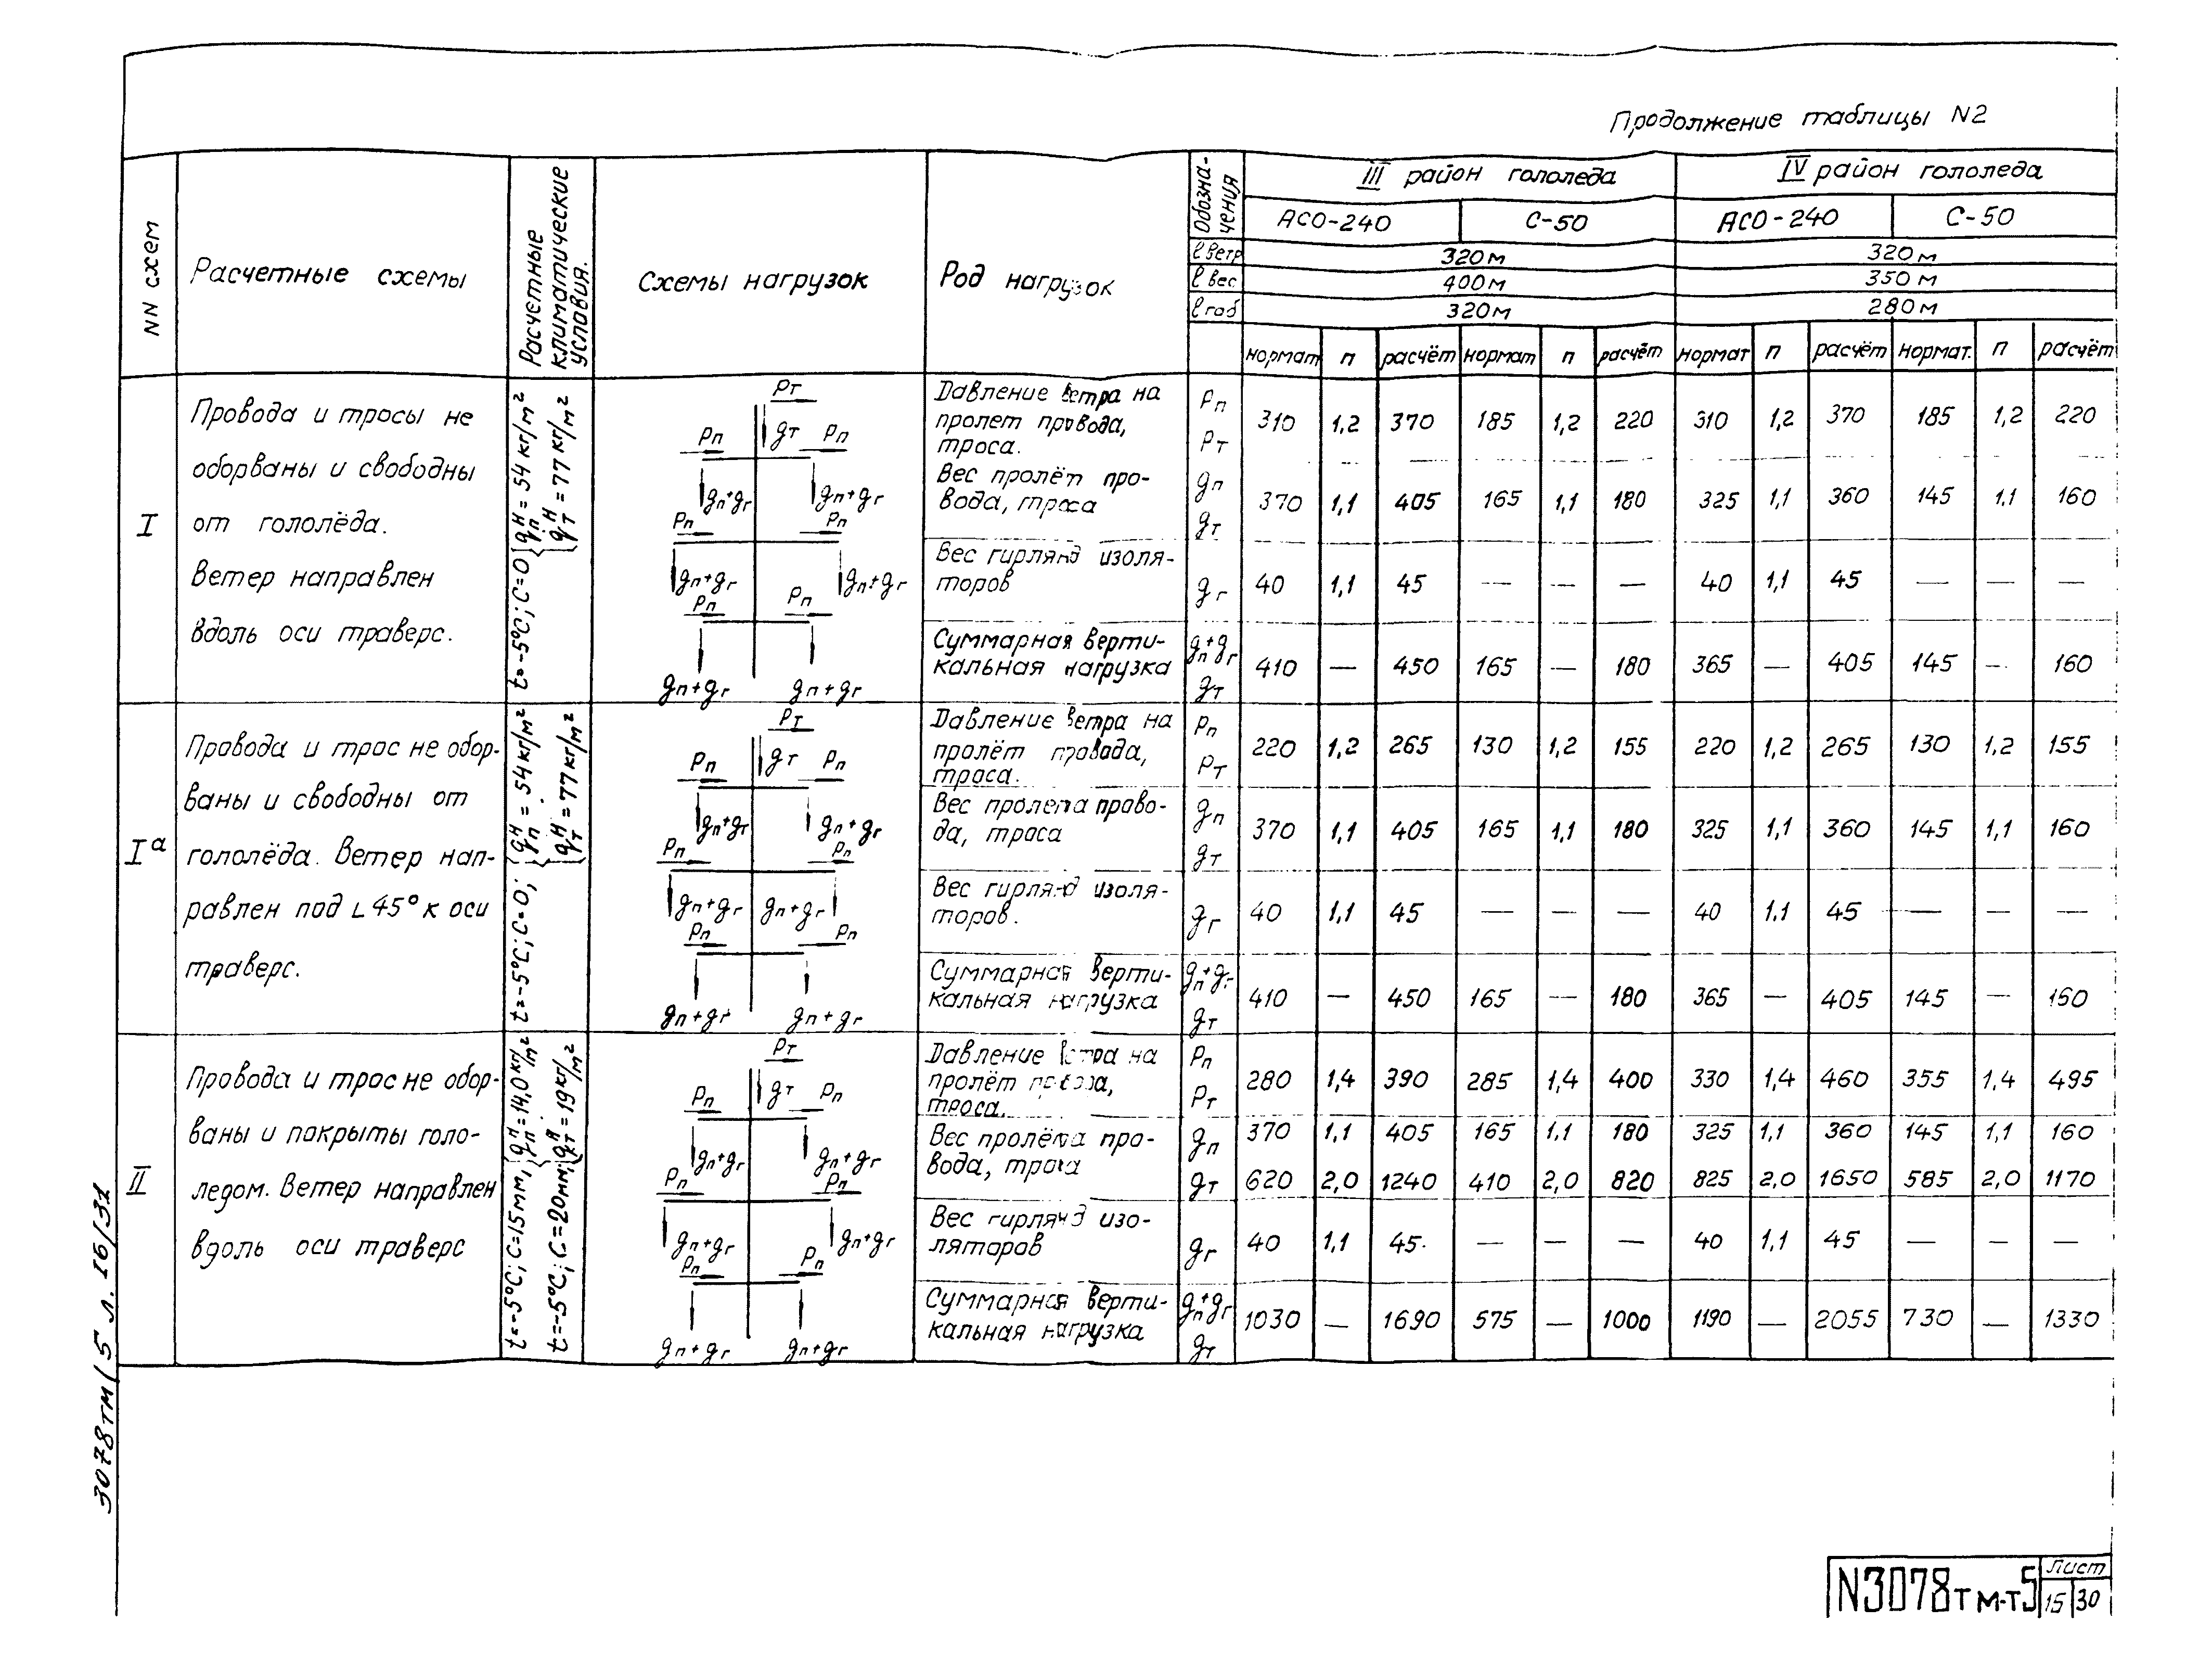 Продолжение таблицы N2
NN схем
Расчетные схемы
Расчетные
климатические
условия.
Схемы нагрузок
Род нагрузок
Обозна-
чения
III район гололеда
IV район гололеда
АСО-240
С-50
АСО-240
С-50
l ветр
320м
320м
l вес
400м
350м
l габ
320м
280м
нормат
п
расчёт
нормат
п
расчёт
нормат
п
расчёт
нормат.
п
расчёт
I
Провода и тросы не
оборваны и свободны
от гололёда.
Ветер направлен
вдоль оси траверс.
t=-5°C; C=0 {qпН = 54 кг/м²
{qтН = 77 кг/м²
Pт
gт
Pп
Pп
gп+gг
gп+gг
Pп
Pп
gп+gг
gп+gг
Pп
Pп
gп+gг
gп+gг
Давление ветра на
пролет провода,
троса.
Pп
Pт
310 1,2 370 185 1,2 220 310 1,2 370 185 1,2 220
Вес пролёт про-
вода, троса
gп
gт
370 1,1 405 165 1,1 180 325 1,1 360 145 1,1 160
Вес гирлянд изоля-
торов
gг
40 1,1 45 — — — 40 1,1 45 — — —
Суммарная верти-
кальная нагрузка
gп+gг
gт
410 — 450 165 — 180 365 — 405 145 — 160
Iа
Провода и трос не обор-
ваны и свободны от
гололёда. Ветер нап-
равлен под ∟45° к оси
траверс.
t=-5°C; C=0; {qпН = 54 кг/м²
{qтН = 77 кг/м²
Pт
gт
Pп
Pп
gп+gг
gп+gг
Pп
Pп
gп+gг
gп+gг
Pп
Pп
gп+gг
gп+gг
Давление ветра на
пролёт провода,
троса.
Pп
Pт
220 1,2 265 130 1,2 155 220 1,2 265 130 1,2 155
Вес пролета прово-
да, троса
gп
gт
370 1,1 405 165 1,1 180 325 1,1 360 145 1,1 160
Вес гирлянд изоля-
торов.
gг
40 1,1 45 — — — 40 1,1 45 — — —
Суммарная верти-
кальная нагрузка
gп+gг
gт
410 — 450 165 — 180 365 — 405 145 — 160
II
Провода и трос не обор-
ваны и покрыты голо-
ледом. Ветер направлен
вдоль оси траверс
t=-5°C; C=15мм, {qпН=14,0 кг/м²
t=-5°C; C=20мм; {qтН=19 кг/м²
Pт
gт
Pп
Pп
gп+gг
gп+gг
Pп
Pп
gп+gг
gп+gг
Pп
Pп
gп+gг
gп+gг
Давление ветра на
пролёт провода,
троса.
Pп
Pт
280 1,4 390 285 1,4 400 330 1,4 460 355 1,4 495
Вес пролёта про-
вода, троса
gп
gт
370 1,1 405 165 1,1 180 325 1,1 360 145 1,1 160
620 2,0 1240 410 2,0 820 825 2,0 1650 585 2,0 1170
Вес гирлянд изо-
ляторов
gг
40 1,1 45 — — — 40 1,1 45 — — —
Суммарная верти-
кальная нагрузка
gп+gг
gт
1030 — 1690 575 — 1000 1190 — 2055 730 — 1330
3078тм/5 л. 16/31
N3078тм-т5
Лист
15 30